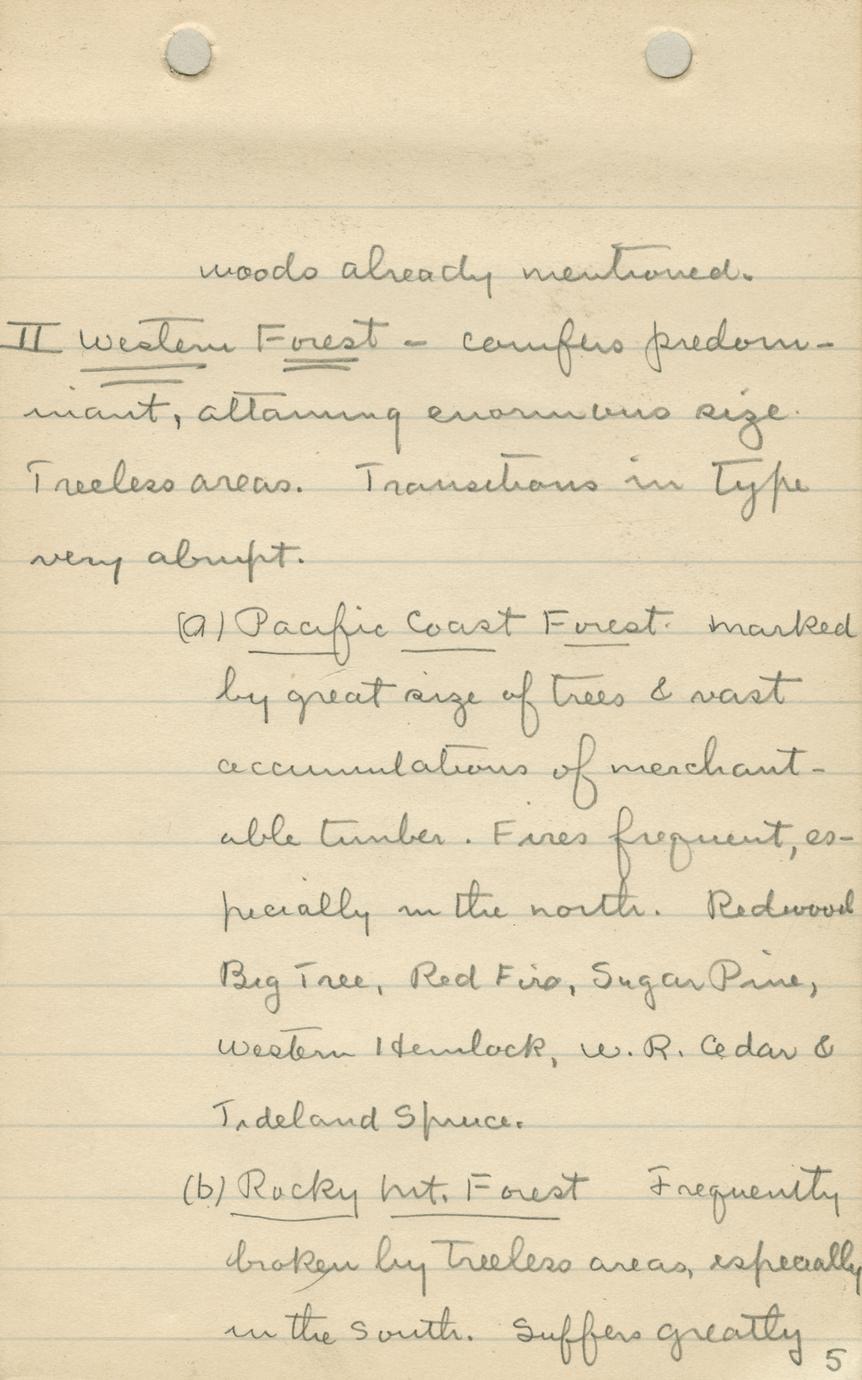 woods already mentioned.
II Western Forest - conifers predom-
inant, attaining enormous size.
Treeless areas. Transitions in type
very abrupt.
(a) Pacific Coast Forest. marked
by great size of trees & vast
accumulations of merchant-
able timber. Fires frequent, es-
pecially in the north. Redwood
Big Tree, Red Fir, Sugar Pine,
Western Hemlock, W. R. Cedar &
Tideland Spruce.
(b) Rocky Mt. Forest Frequently
broken by treeless areas, especially
in the South. Suffers greatly
5